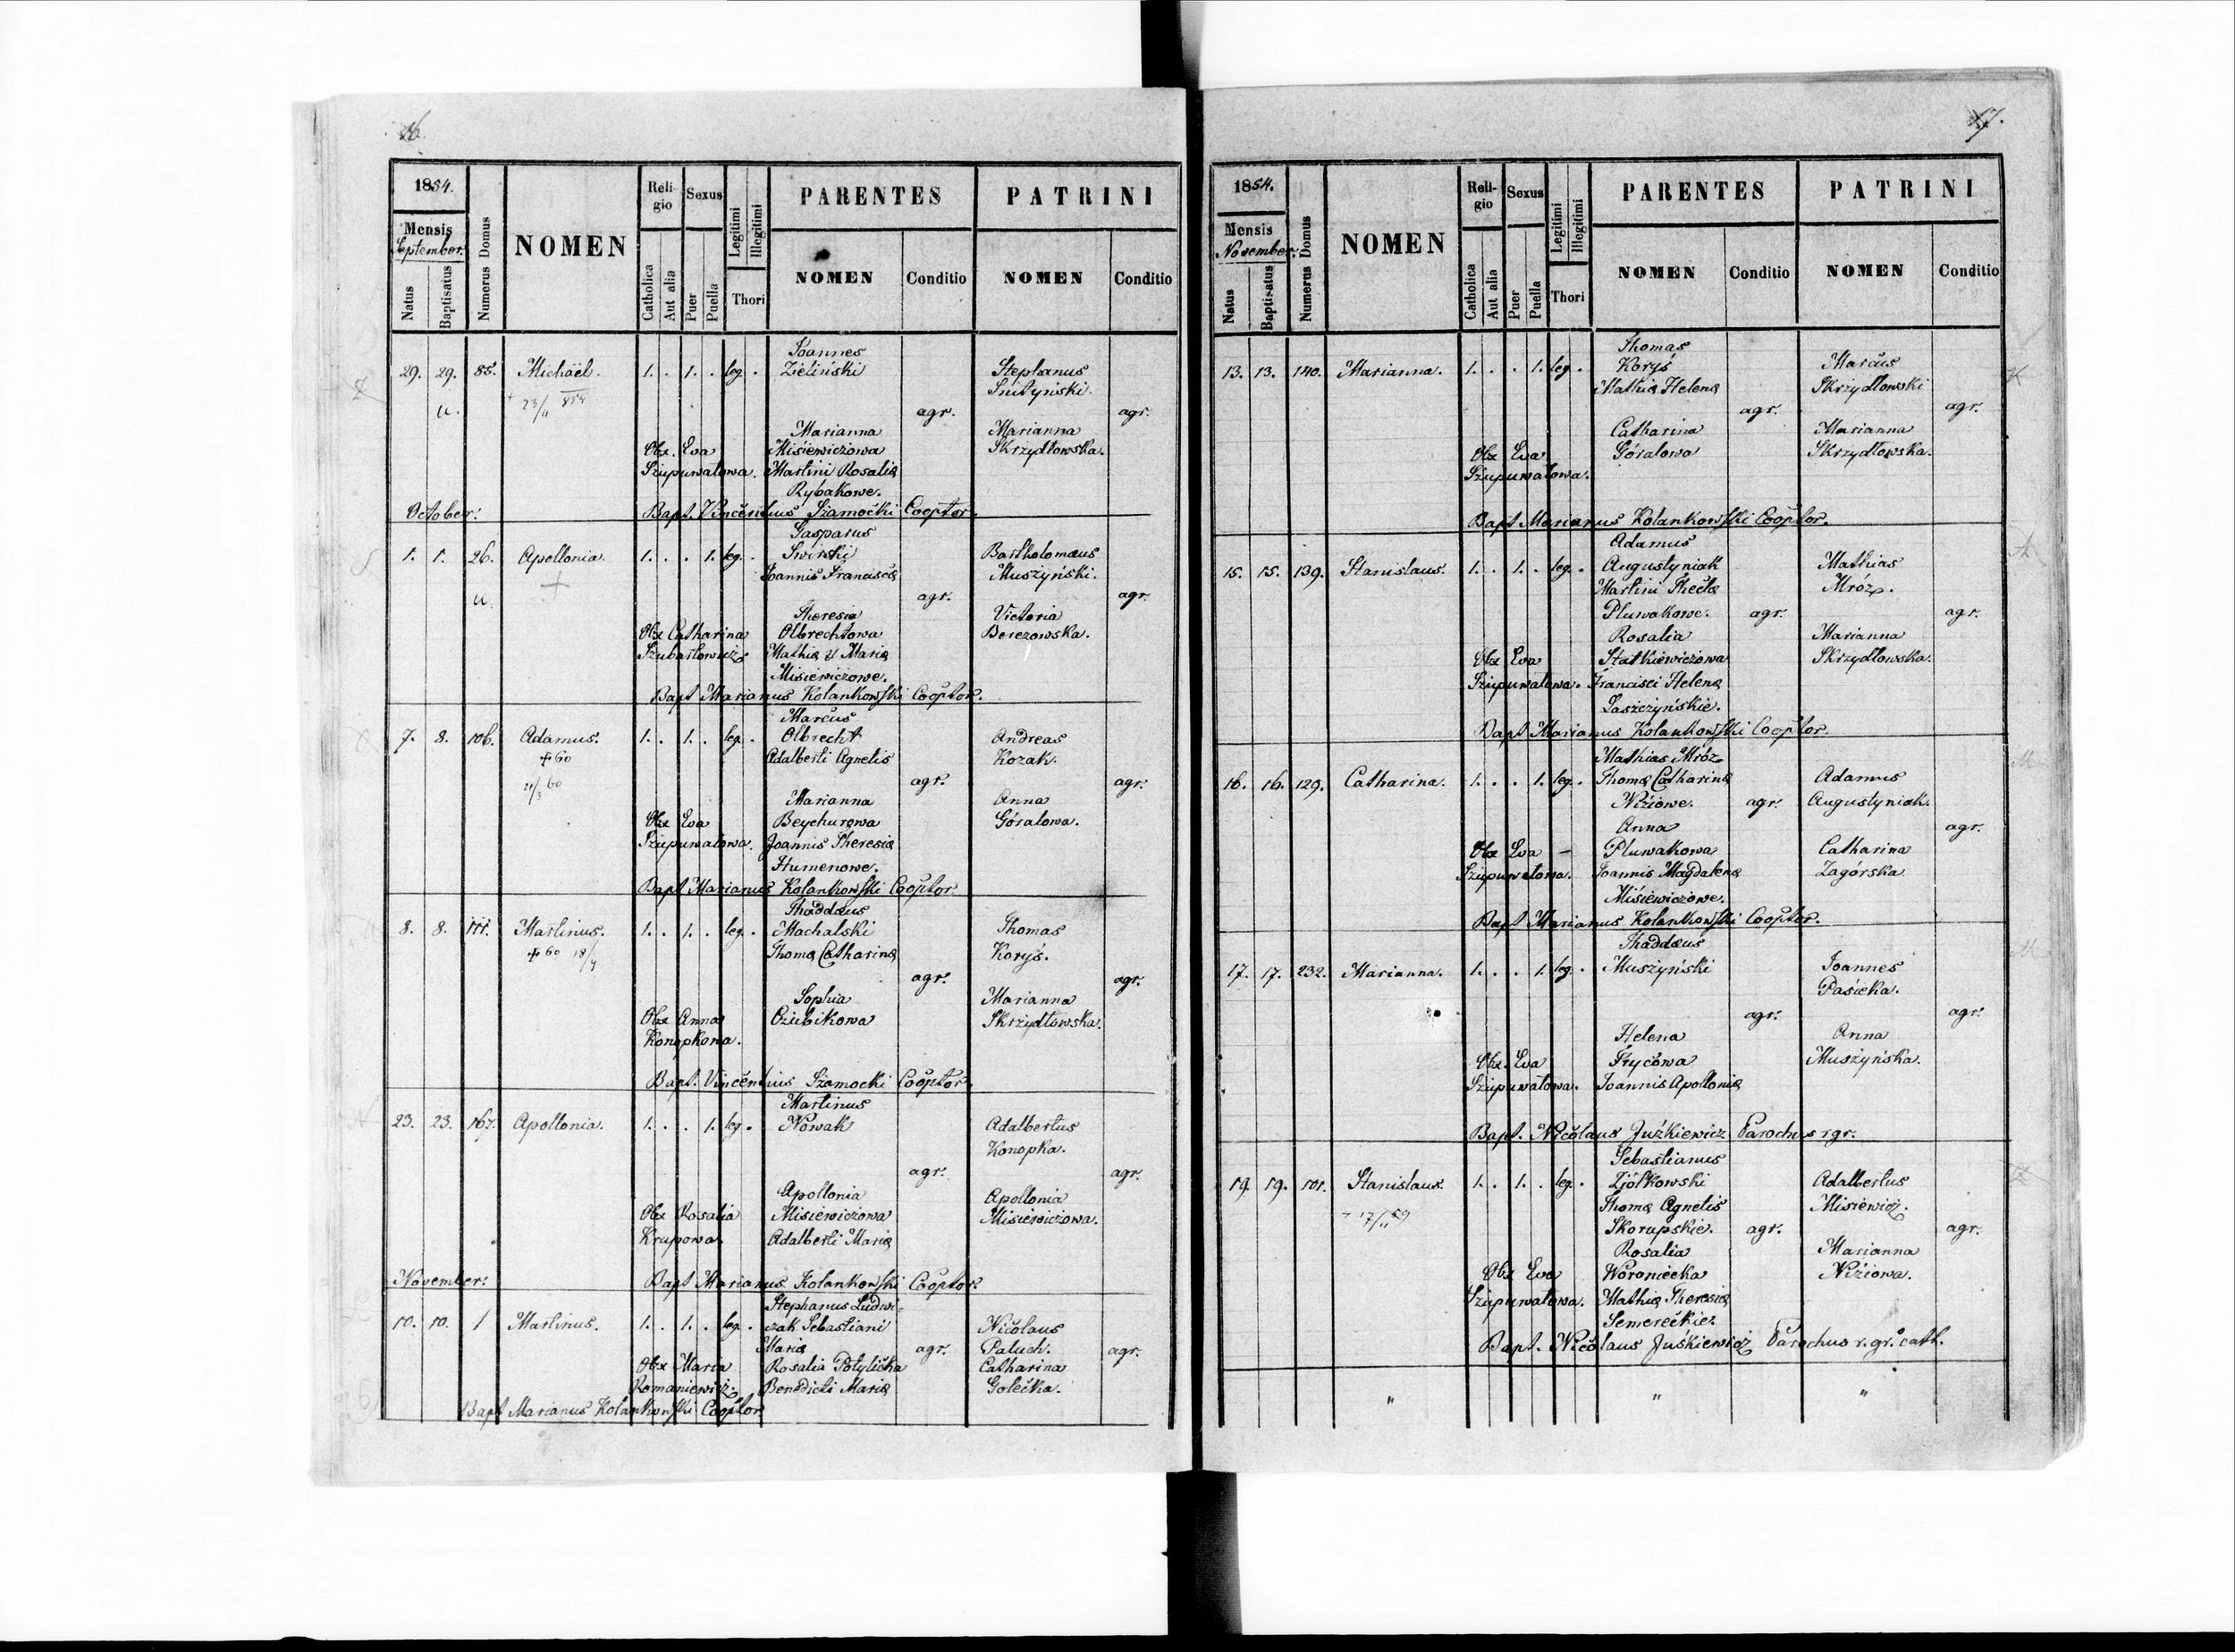 1854.
Mensis
September.
Natus
Baptisatus
Numerus Domus
NOMEN
Religio
Catholica
Aut alia
Sexus
Puer
Puella
Legitimi
Illegitimi
Thori
PARENTES
NOMEN
Conditio
PATRINI
NOMEN
Conditio
Joannes
29. 29. 85. Michaël. 1. . 1. . leg. . Zieliński Stephanus
23/11 854 Snityński.
u. agr. agr.
Marianna Marianna
Obx. Eva Misiewiczowa Skrzydłowska.
Szupuwałowa. Martini Rosalia
Rybakowe.
October: Bapt. Vincentius Szamocki Cooptor.
Gasparus
1. 1. 26. Apollonia. 1. . . 1. leg. . Swirski Bartholomæus
Joannis Franciscæ Muszyński.
u. agr. agr.
Theresia Victoria
Obx Catharina Olbrechtowa Berezowska.
Szubartowicz. Mathiæ & Mariæ
Misiewiczowe.
Bapt Marianus Kolankowski Cooptor.
Marcus
7. 8. 106. Adamus. 1. . 1. . leg. . Olbrecht Andreas
+ 60 Adalberti Agnetis Kozak.
21/3 60 agr. agr.
Marianna Anna
Obx Eva Beychurowa Góralowa.
Szupuwałowa. Joannis Theresiæ
Humenowe.
Bapt Marianus Kolankowski Cooptor.
Thaddæus
8. 8. 111. Martinus. 1. . 1. . leg. . Machalski Thomas
+ 60 Thomæ Catharinæ Koryś.
agr. agr.
Sophia Marianna
Obx Anna Oziubikowa Skrzydłowska.
Konopkowa.
Bapt. Vincentius Szamocki Cooptor.
Martinus
23. 23. 167. Apollonia. 1. . . 1. leg. . Nowak Adalbertus
Konopka.
agr. agr.
Apollonia Apollonia
Obx Rosalia Misiewiczowa Misiewiczowa.
Krupowa. Adalberti Mariæ
November: Bapt Marianus Kolankowski Cooptor.
Stephanus Ludwi-
10. 10. 1 Martinus. 1. . 1. . leg. . czak Sebastiani Nicolaus
Mariæ agr. Paluch. agr.
Obx Maria Rosalia Potylicka Catharina
Romaniewicz. Benedicti Mariæ Golecka.
Bapt Marianus Kolankowski Cooptor
17.
1854.
Mensis
November.
Natus
Baptisatus
Numerus Domus
NOMEN
Religio
Catholica
Aut alia
Sexus
Puer
Puella
Legitimi
Illegitimi
Thori
PARENTES
NOMEN
Conditio
PATRINI
NOMEN
Conditio
Thomas
13. 13. 140. Marianna. 1. . . 1. leg. . Koryś Marcus
Mathiæ Helenæ Skrzydłowski
agr. agr.
Catharina Marianna
Obx Eva Góralowa Skrzydłowska.
Szupuwałowa.
Bapt Marianus Kolankowski Cooptor.
Adamus
15. 15. 139. Stanislaus. 1. . 1. . leg. . Augustyniak Mathias
Martini Theclæ Mróz.
Pluwakowe. agr. agr.
Rosalia Marianna
Obx Eva Statkiewiczowa Skrzydłowska.
Szupuwałowa. Francisci Helenæ
Saszczyńskie.
Bapt Marianus Kolankowski Cooptor.
Mathias Mróz
16. 16. 129. Catharina. 1. . . 1. leg. . Thomæ Catharinæ Adamus
Niziowe. agr. Augustyniak.
Anna agr.
Obx Eva – Pluwakowa Catharina
Szupuwałowa. Joannis Magdalenæ Zagórska.
Misiewiczowe.
Bapt Marianus Kolankowski Cooptor.
Thaddæus
17. 17. 232. Marianna. 1. . . 1. leg. . Muszyński Joannes
Pasieka.
agr. agr.
Helena Anna
Obx. Eva Frycowa Muszyńska.
Szupuwałowa. Joannis Apolloniæ
Bapt. Nicolaus Juźkiewicz Parochus r. gr.
Sebastianus
19. 19. 101. Stanislaus. 1. . 1. . leg. . Ziółkowski Adalbertus
17/11 59 Thomæ Agnetis Misiewicz.
Skorupskie. agr. agr.
Rosalia Marianna
Obx Eva Woroniecka Niziowa.
Szupuwałowa. Mathiæ Theresiæ
Semereckie.
Bapt. Nicolaus Juśkiewicz Parochus r. gr. cath.
" " "